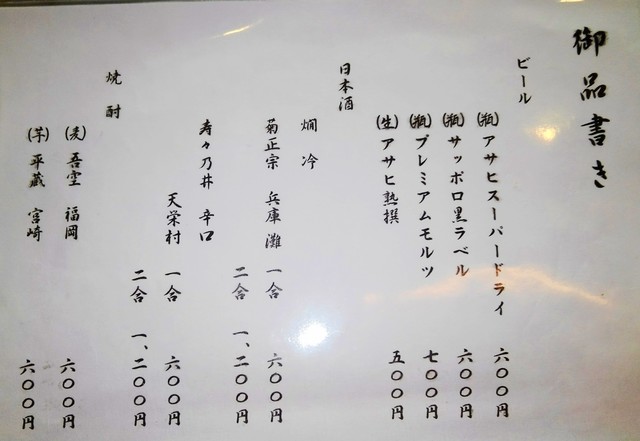 御品書き
ビール
(瓶)アサヒスーパードライ 六〇〇円
(瓶)サッポロ黒ラベル 六〇〇円
(瓶)プレミアムモルツ 七〇〇円
(生)アサヒ熟撰 五〇〇円
日本酒
燗 冷
菊正宗 兵庫 灘 一合 六〇〇円
二合 一、二〇〇円
寿々乃井 辛口
天栄村 一合 六〇〇円
二合 一、二〇〇円
焼酎
(麦)吾空 福岡 六〇〇円
(芋)平蔵 宮崎 六〇〇円